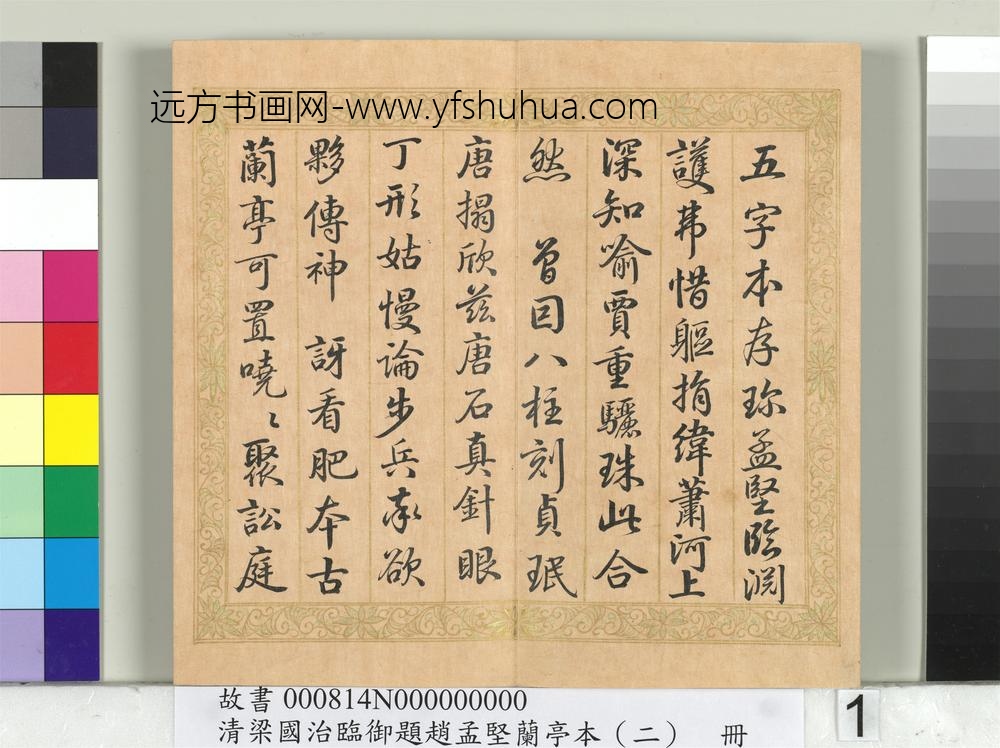 远方书画网-www.yfshuhua.com
五字本存珎孟堅臨渊
護弗惜軀捐緯蕭河上
深知喻賈重驪珠此合
然 曾囙八柱刻貞珉
唐搨欣茲唐石真針眼
丁形姑慢論步兵欲
夥傳神 訝看肥本古
蘭亭可置嘵〻聚訟庭
故書 000814N000000000
清梁國治臨御題趙孟堅蘭亭本（二） 冊
1